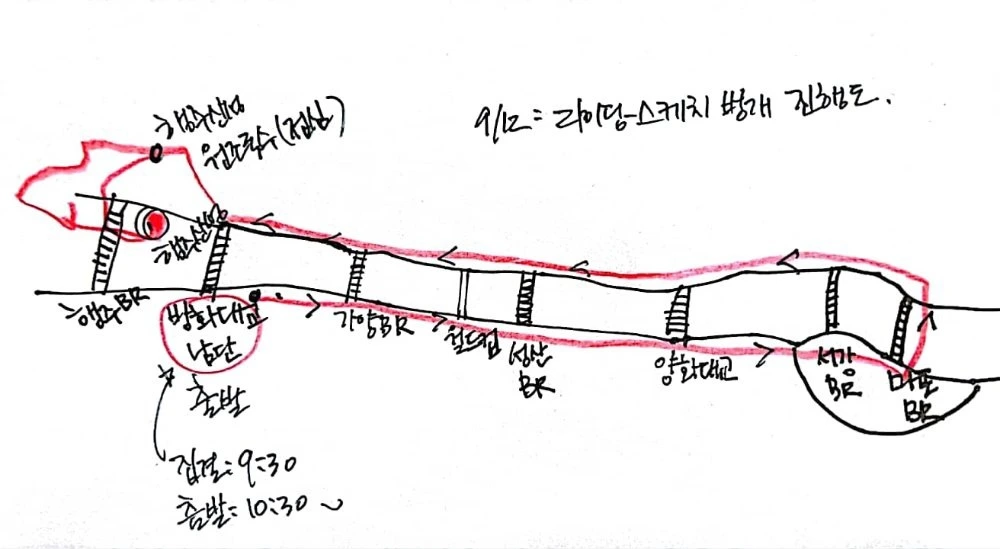 9/12 = 라이딩-스케치 벙개 진행도.
행주산성
원조국수(점심)
행주산성
행주BR
방화대교
남단
출발
집결: 9:30
출발: 10:30 ~
가양BR
철도길
성산
BR
양화대교
서강
BR
마포
BR